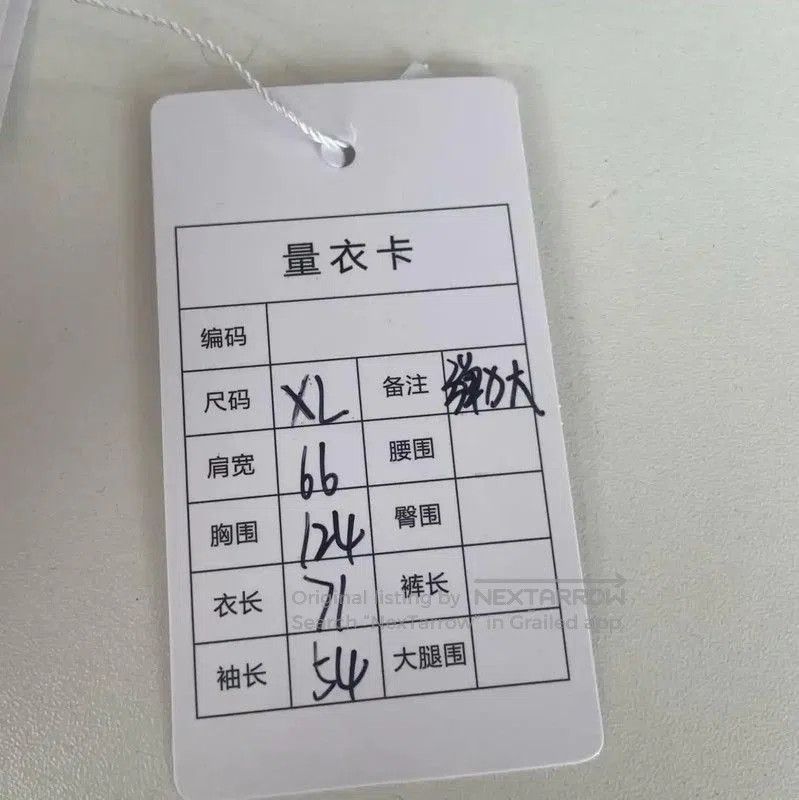 量衣卡
编码
尺码 XL 备注 弹力大
肩宽 66 腰围
胸围 124 臀围
衣长 71 裤长
袖长 54 大腿围
Original listing by NEXTARROW
Search "NexTarrow" in Grailed app